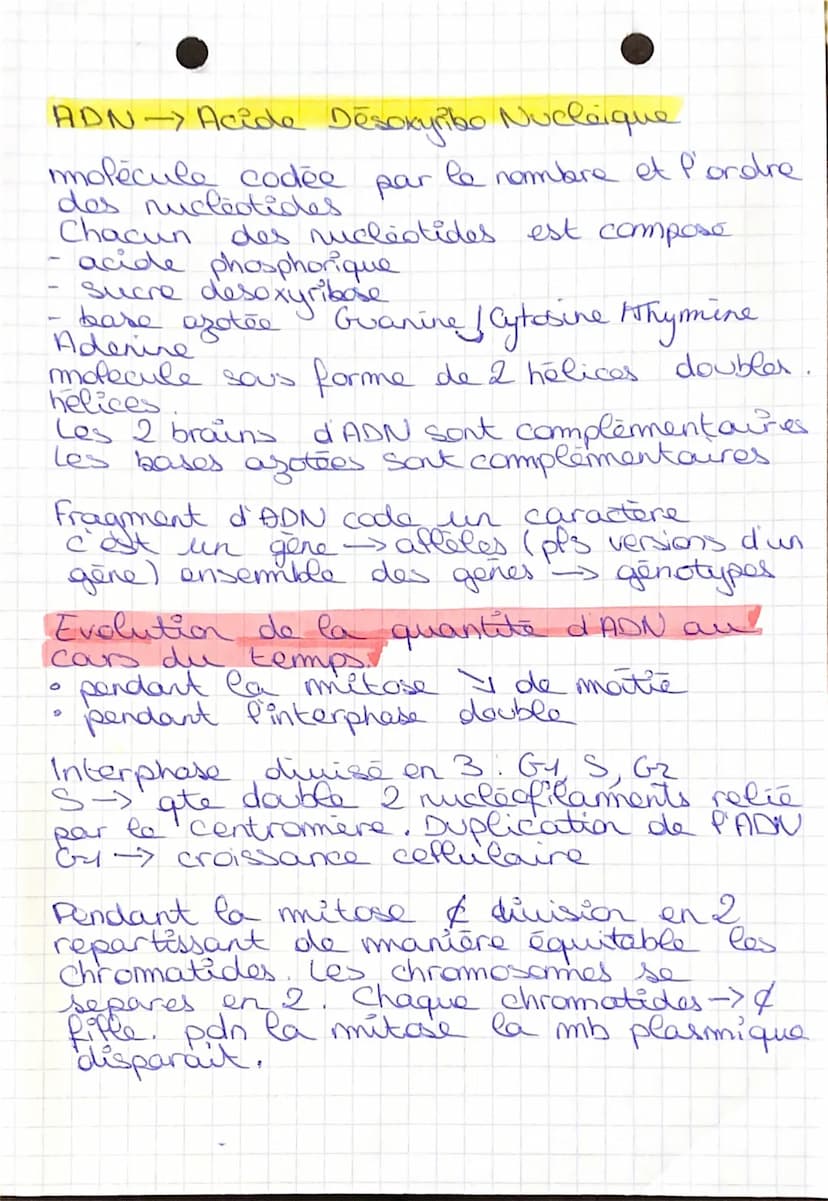 ADN → Acide Désoxyribo Nucléique
molécule codée par le nombre et l'ordre
des nucléotides
Chacun des nucléotides est composé
- acide phosphorique
- sucre desoxyribose
- base azotée Guanine / Cytosine / Thymine
Adenine
molecule sous forme de 2 hélices doubles.
hélices.
Les 2 brains d'ADN sont complémentaires
Les bases azotées sont complémentaires
Fragment d'ADN code un caractère
c'est un gène → allèles (pls versions d'un
gène) ensemble des gènes → génotypes
Evolution de la quantité d'ADN au
cours du temps.
• pendant la mitose ↘ de moitié
• pendant l'interphase double
Interphase divisé en 3 : G1, S, G2
S → qte double 2 nucléofilaments relié
par le centromère. Duplication de l'ADN
G1 → croissance cellulaire
Pendant la mitose ¢ division en 2
repartissant de manière équitable les
chromatides. Les chromosomes se
separes en 2. Chaque chromatides → ¢
fille. pdn la mitose la mb plasmique
disparait.